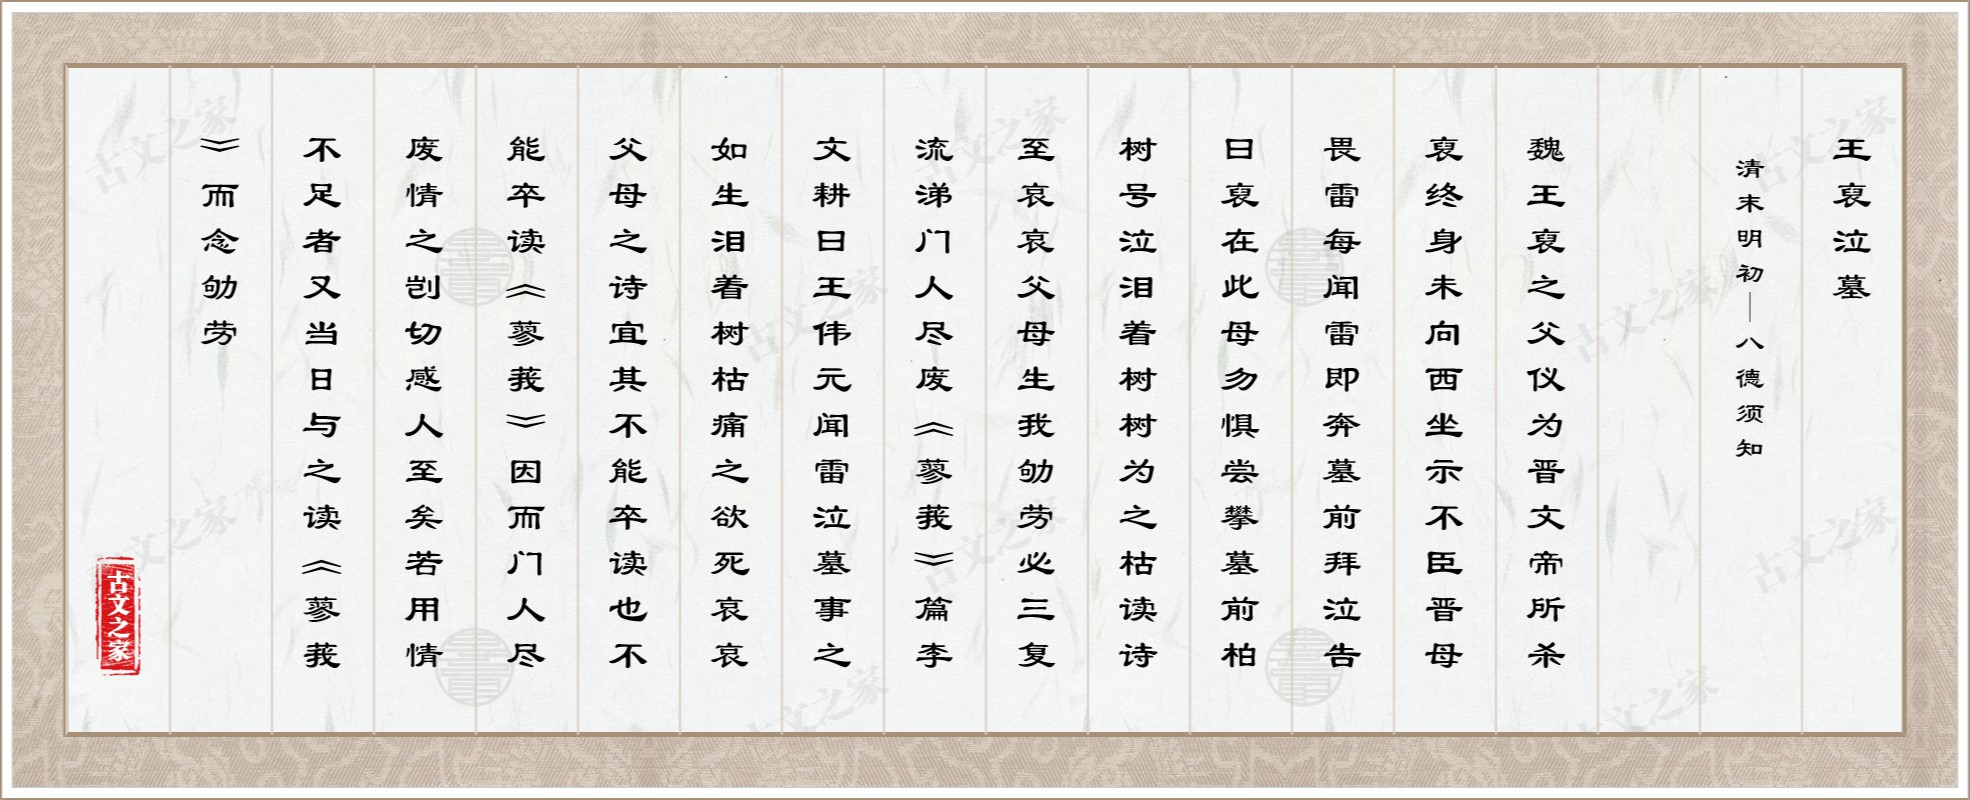 王裒泣墓
清末明初—八德须知
魏王裒之父仪为晋文帝所杀
裒终身未向西坐示不臣晋母
畏雷每闻雷即奔墓前拜泣告
曰裒在此母勿惧尝攀墓前柏
树号泣泪着树树为之枯读诗
至哀哀父母生我劬劳必三复
流涕门人尽废《蓼莪》篇李
文耕曰王伟元闻雷泣墓事之
如生泪着树枯痛之欲死哀哀
父母之诗宜其不能卒读也不
能卒读《蓼莪》因而门人尽
废情之剀切感人至矣若用情
不足者又当日与之读《蓼莪
》而念劬劳
古文之家